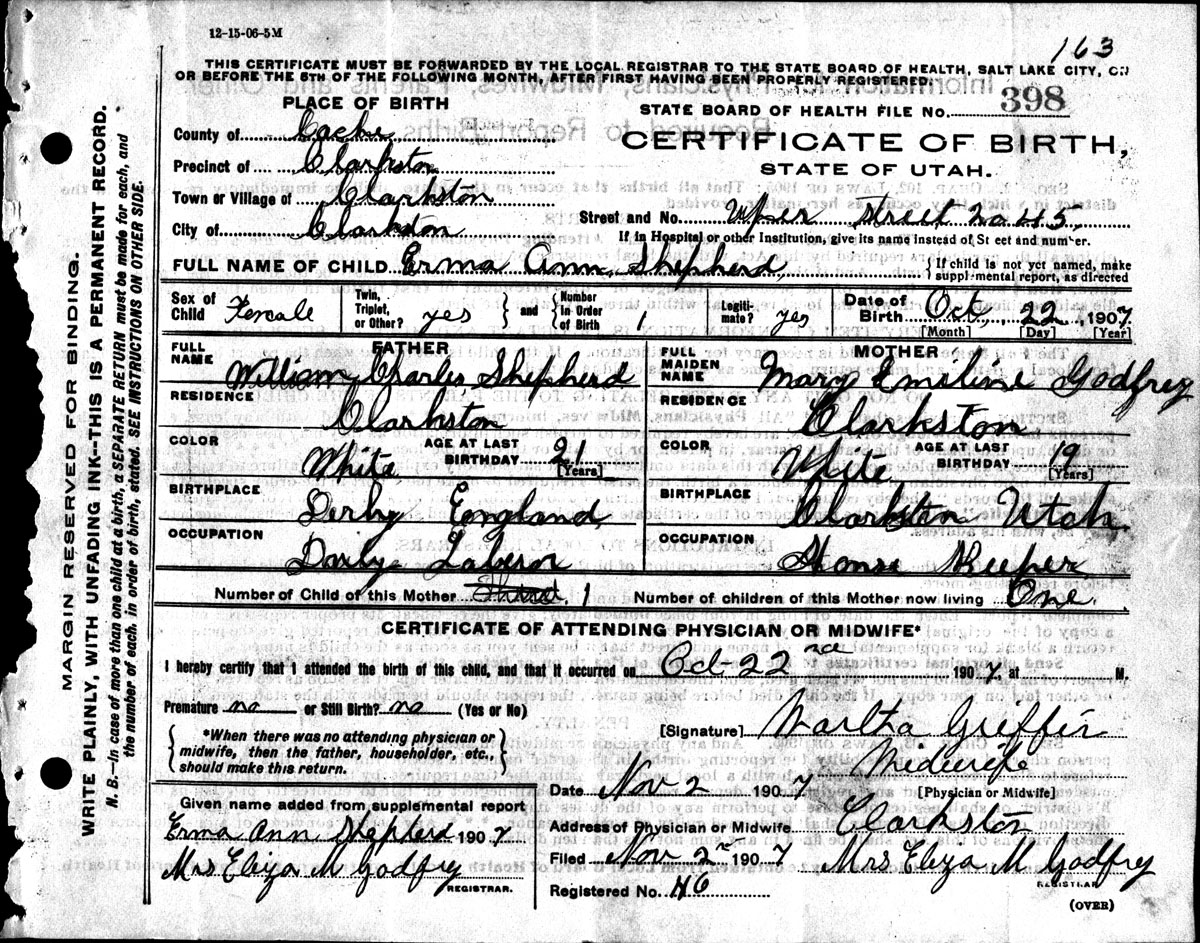 12-15-06-5M
163
THIS CERTIFICATE MUST BE FORWARDED BY THE LOCAL REGISTRAR TO THE STATE BOARD OF HEALTH, SALT LAKE CITY, ON
OR BEFORE THE 5TH OF THE FOLLOWING MONTH, AFTER FIRST HAVING BEEN PROPERLY REGISTERED.
MARGIN RESERVED FOR BINDING.
WRITE PLAINLY, WITH UNFADING INK--THIS IS A PERMANENT RECORD.
N. B.--In case of more than one child at a birth, a SEPARATE RETURN must be made for each, and
the number of each, in order of birth, stated. SEE INSTRUCTIONS ON OTHER SIDE.
PLACE OF BIRTH
County of Cache
Precinct of Clarkston
Town or Village of Clarkston
City of Clarkston
STATE BOARD OF HEALTH FILE No. 398
CERTIFICATE OF BIRTH,
STATE OF UTAH.
Street and No. Upper Street 2a 43
If in Hospital or other Institution, give its name instead of St eet and number.
FULL NAME OF CHILD Erma Ann Shepherd
{If child is not yet named, make
supplemental report, as directed
Sex of Child Female
Twin, Triplet, or Other? yes
and Number in Order of Birth 1
Legitimate? yes
Date of Birth Oct 22, 1907
[Month] [Day] [Year]
FATHER
FULL NAME William Charles Shepherd
RESIDENCE Clarkston
COLOR White AGE AT LAST BIRTHDAY 21 [Years]
BIRTHPLACE Derby England
OCCUPATION Daily Laberor
MOTHER
FULL MAIDEN NAME Mary Emeline Godfrey
RESIDENCE Clarkston
COLOR White AGE AT LAST BIRTHDAY 19 [Years]
BIRTHPLACE Clarkston Utah
OCCUPATION House Keeper
Number of Child of this Mother 1
Number of children of this Mother now living One
CERTIFICATE OF ATTENDING PHYSICIAN OR MIDWIFE*
I hereby certify that I attended the birth of this child, and that it occurred on Oct 22nd 1907, at M.
Premature no or Still Birth? no (Yes or No)
*When there was no attending physician or
midwife, then the father, householder, etc.,
should make this return.
[Signature] Martha Griffin
Midwife
[Physician or Midwife]
Date Nov 2 1907
Address of Physician or Midwife Clarkston
Filed Nov 2 1907 Mrs Eliza M Godfrey
REGISTRAR
Registered No. 46
(OVER)
Given name added from supplemental report
Erma Ann Shepherd 1907
Mrs Eliza M Godfrey
REGISTRAR.